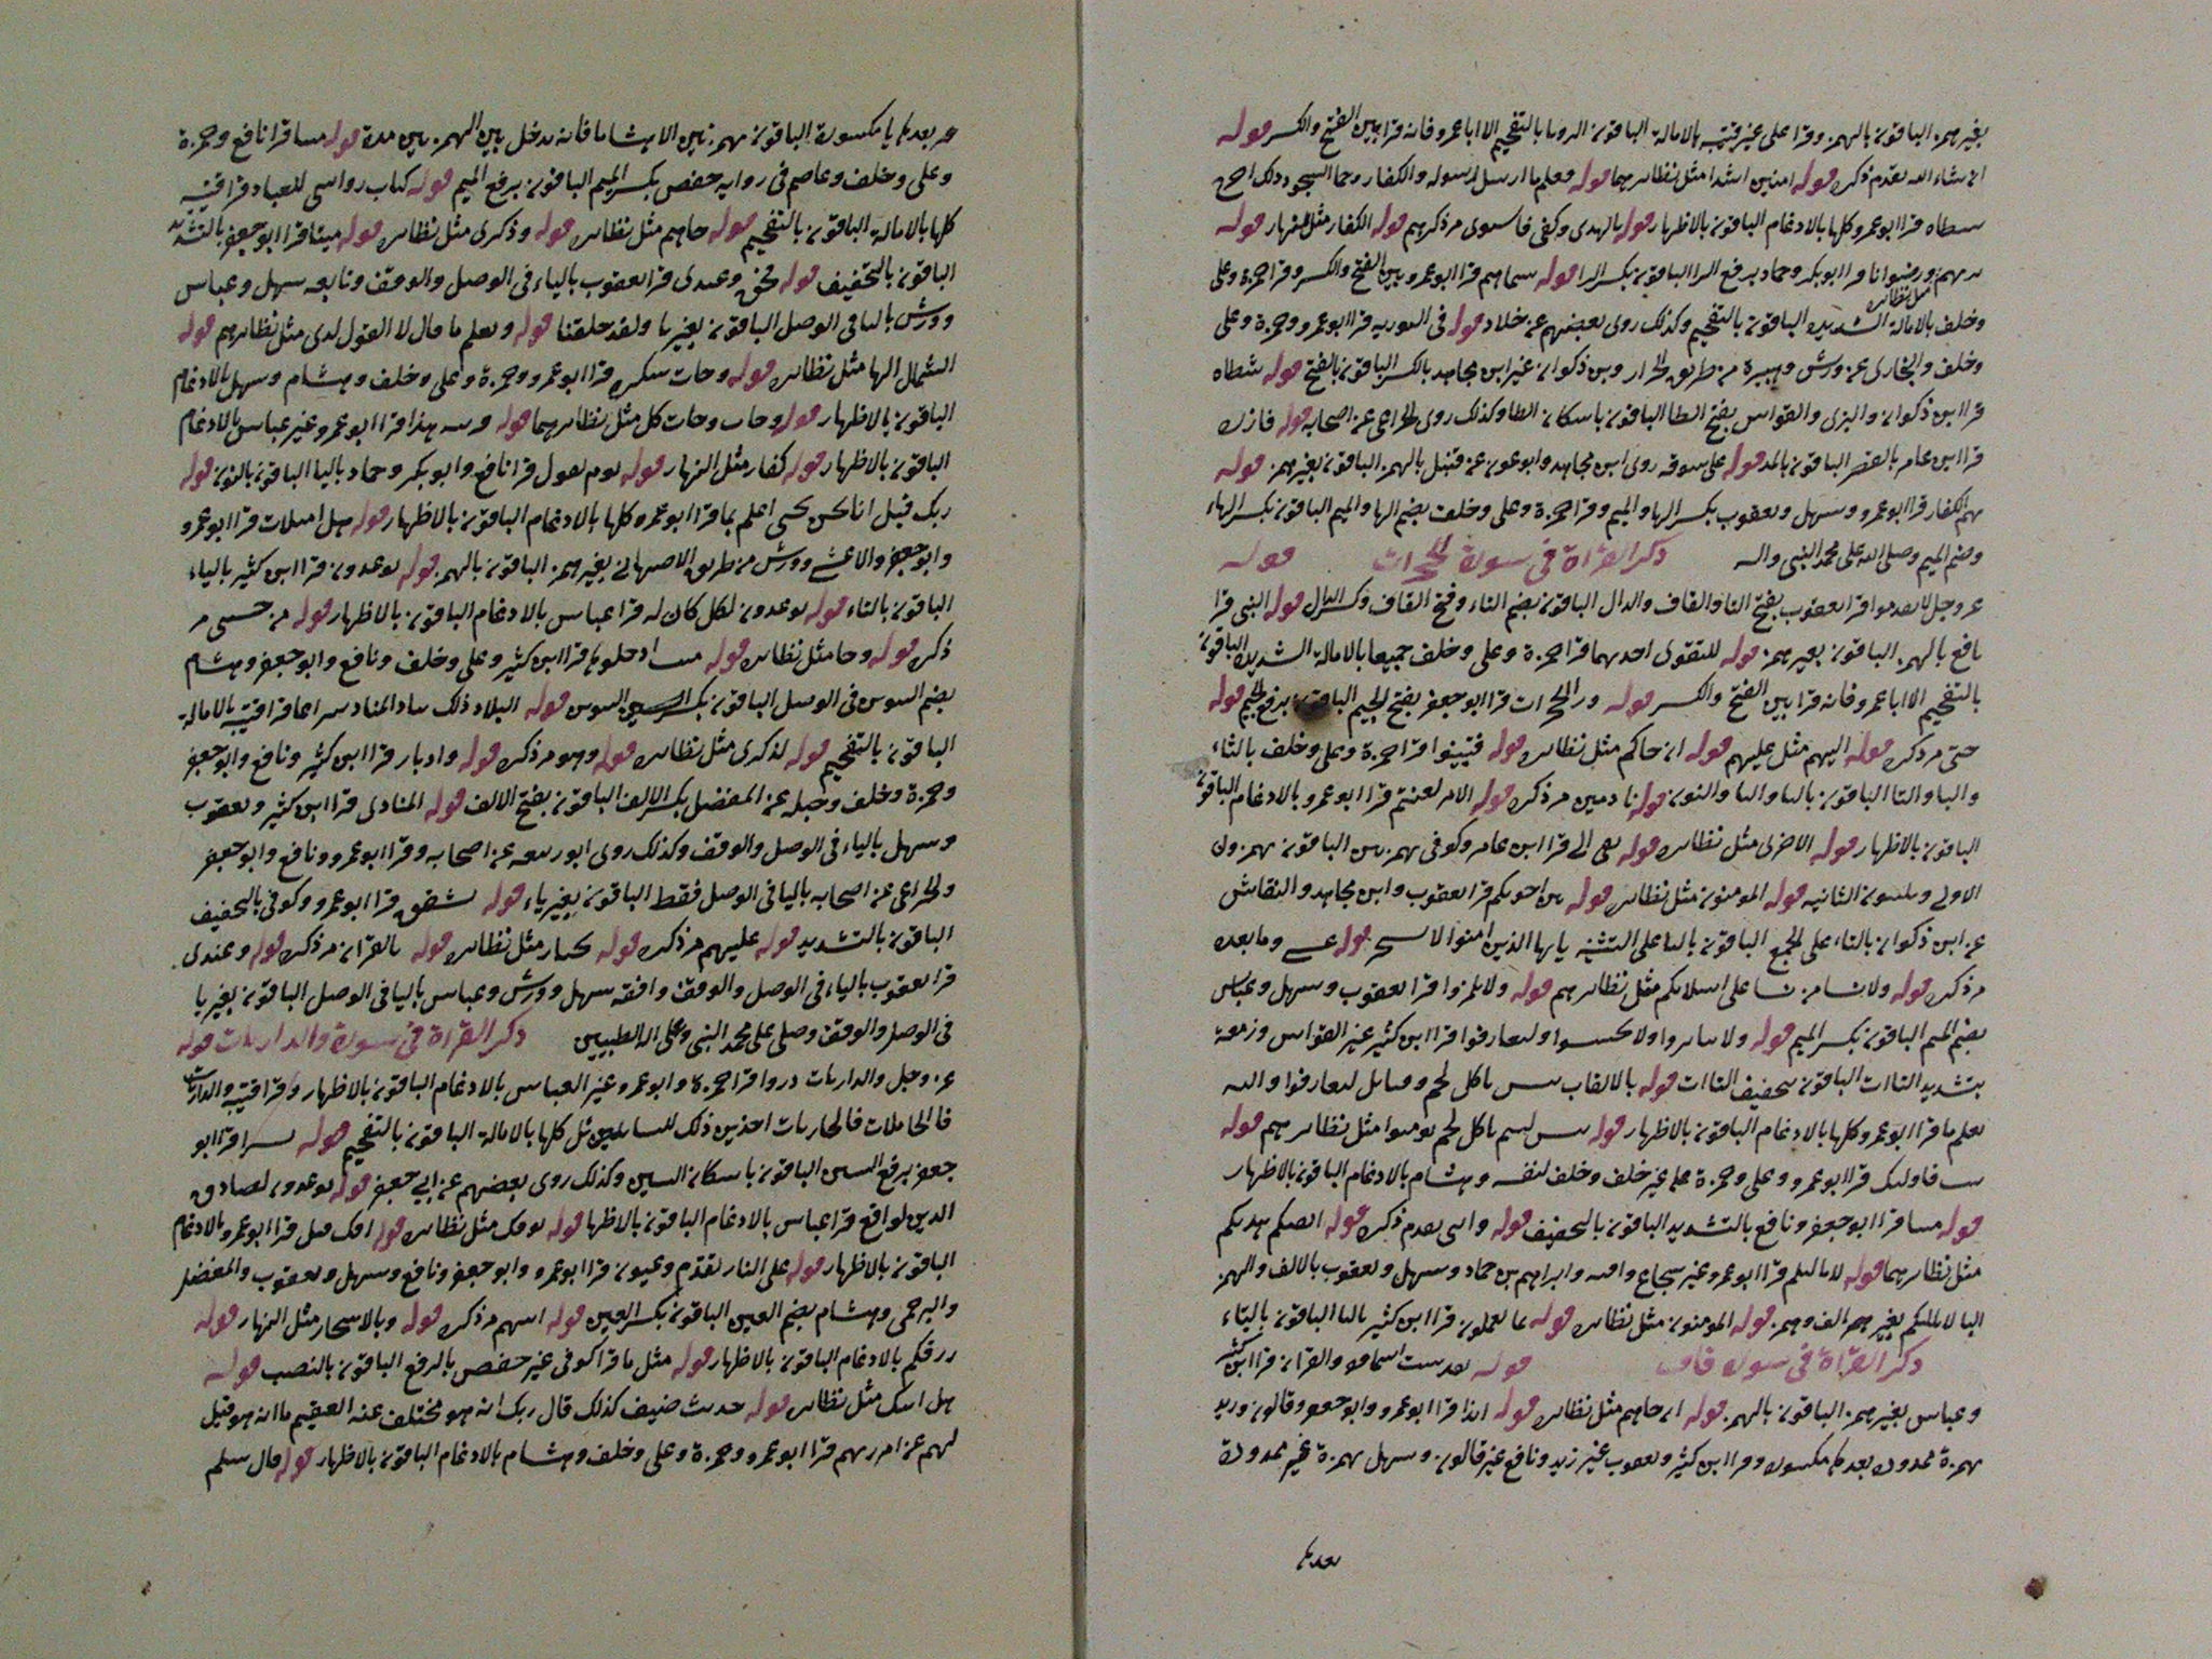 بغير همز الباقون بالهمز وقرا على غير قتيبة بالامالة الباقون الروىا بالتفخيم الا ابا عمرو فانه قرا بين الفتح والكسر قوله
ان شاء الله تقدم ذكره قوله امنين اشدا مثل نظائرهما قوله فعلم ما ارسل رسوله والكفار رحما السجود ذلك اخرج
سطاه قرا ابو عمرو كلها بالادغام الباقون بالاظهار قوله بالهدى وكفى فاستوى مر ذكرهم قوله الكفار مثل النهار قوله
ورضوانا قرا ابو بكر وحماد برفع الرا الباقون بكسر الرا قوله سيماهم قرا ابو عمرو بين الفتح والكسر وقرا حمزة وعلى
مثل نظائره
وخلف بالامالة الشديدة الباقون بالتفخيم وكذلك روى بعضهم عن خلاد قوله فى التوريه قرا ابو عمرو وحمزة وعلى
وخلف والبخارى عن ورش وهبيرة من طريق الخزاز وبن ذكوان غير ابن مجاهد بالكسر الباقون بالفتح قوله شطاه
قرا ابن ذكوان والبزى والقواس بفتح الطا الباقون باسكان الطا وكذلك روى الخزاعى عن اصحابه قوله فازره
قرا ابن عامر بالقصر الباقون بالمد قوله على سوقه روى ابن مجاهد وابو عون عن قنبل بالهمز الباقون بغير همز قوله
بهم الكفار قرا ابو عمرو وسهل ويعقوب بكسر الها والميم وقرا حمزة وعلى وخلف بضم الها والميم الباقون بكسر الهاء
وضم الميم وصلى الله على محمد النبى واله ذكر القراة فى سورة الحجرات قوله
عز وجل لا تقدموا قرا يعقوب بفتح التا والقاف والدال الباقون بضم التاء وفتح القاف وكسر الدال قوله النبى قرا
نافع بالهمز الباقون بغير همز قوله للتقوى احديهما قرا حمزة وعلى وخلف جميعا بالامالة الشديدة الباقون
بالتفخيم الا ابا عمرو فانه قرا بين الفتح والكسر قوله ورا الحجرات قرا ابو جعفر بفتح الجيم الباقون برفع الجيم قوله
حتى مر ذكره قوله اليهم مثل عليهم قوله ان جاكم مثل نظائره قوله فتبينوا قرا حمزة وعلى وخلف بالثاء
والبا والتا الباقون بالبا واليا والنون قوله نادمين مر ذكره قوله الامر لعنتم قرا ابو عمرو بالادغام الباقون
الباقون بالاظهار قوله الاخرى مثل نظائره قوله تفى الى قرا ابن عامر وكوفى بهمزتين الباقون بهمزون
الاولى ويلينون الثانيه قوله المومنون مثل نظائره قوله بين اخويكم قرا يعقوب وابن مجاهد والنقاش
عن ابن ذكوان بالتاء على الجمع الباقون باليا على التثنيه يايها الذين امنوا لا يسخر قوله عسى وما بعده
مر ذكره قوله ولا نسا من نسا على اسلامكم مثل نظائرهم قوله ولا تلمزوا قرا يعقوب وسهل وعباس
بضم الميم الباقون بكسر الميم قوله ولا تنابزوا ولا تجسسوا ولتعارفوا قرا ابن كثير غير القواس وزمعة
بتشديد التاات الباقون بتخفيف التاات قوله بالالقاب بئس ياكل لحم وقبائل لتعارفوا والله
يعلم ما قرا ابو عمرو كلها بالادغام الباقون بالاظهار قوله بئس لسم ياكل لحم يومنوا مثل نظائرهم قوله
يتب فاولئك قرا ابو عمرو وعلى وحمزة على غير خلف وخلف لنفسه وهشام بالادغام الباقون بالاظهار
قوله ميتا قرا ابو جعفر ونافع بالتشديد الباقون بالتخفيف قوله وانثى تقدم ذكره قوله اتقيكم هديكم
مثل نظائرهما قوله لا يالتكم قرا ابو عمرو غير شجاع وابراهيم بن حماد وسهل ويعقوب بالالف والهمز
البا لا يلتكم بغير الف وهمز قوله المومنون مثل نظائره قوله بما تعملون قرا ابن كثير باليا الباقون بالتاء
ذكر القراة فى سورة قاف قوله تقدست اسماوه والقران قرا ابن كثير
وعباس بغير همز الباقون بالهمز قوله ان جاهم مثل نظائره قوله ائذا قرا ابو عمرو وابو جعفر وقالون وزيد
بهمزة ممدودة بعدها مكسورة وقرا ابن كثير ويعقوب غير زيد ونافع غير قالون وسهل بهمزة غير ممدودة
بعدها
بعدها يا مكسورة الباقون بهمزتين الا هشاما فانه يدخل بين الهمزتين مدة قوله متنا قرا نافع وحمزة
وعلى وخلف وعاصم فى رواية حفص بكسر الميم الباقون برفع الميم قوله كتاب رواسى للعباد قرا قتيبة
كلها بالامالة الباقون بالتفخيم قوله جاهم مثل نظائره قوله وذكرى مثل نظائره قوله ميتا قرا ابو جعفر بالتشديد
الباقون بالتخفيف قوله فحق وعيدى قرا يعقوب بالياء فى الوصل والوقف وتابعه سهل وعباس
وورش باليا فى الوصل الباقون بغير يا ولقد خلقنا قوله ونعلم ما قال لا القول لدى مثل نظائرهم قوله
الشمال الها مثل نظائره قوله وجات سكرة قرا ابو عمرو وحمزة وعلى وخلف وهشام وسهل بالادغام
الباقون بالاظهار قوله وجاب وجات كل مثل نظائرهما قوله قرينه هذا قرا ابو عمرو غير عباس بالادغام
الباقون بالاظهار قوله كفار مثل النهار قوله يوم نقول قرا نافع وابو بكر وحماد باليا الباقون بالنون قوله
ربك قبل انا نحن نحيى اعلم بما قرا ابو عمرو كلها بالادغام الباقون بالاظهار قوله هل امتلات قرا ابو عمرو
وابو جعفر والاعشى وورش من طريق الاصبهانى بغير همز الباقون بالهمز قوله توعدون قرا ابن كثير بالياء
الباقون بالتاء قوله توعدون لكل كان له قرا عباس بالادغام الباقون بالاظهار قوله من خشى مر
ذكره قوله وجا مثل نظائره قوله منيب ادخلوها قرا ابن كثير وعلى وخلف ونافع وابو جعفر وهشام
بضم التنوين فى الوصل الباقون بكسر التنوين قوله البلاد ذلك يناد المناد سراعا قرا قتيبة بالامالة
الباقون بالتفخيم قوله لذكرى مثل نظائره قوله وهو مر ذكره قوله وادبار قرا ابن كثير ونافع وابو جعفر
وحمزة وخلف وجبله عن المفضل بكسر الالف الباقون بفتح الالف قوله المنادى قرا ابن كثير ويعقوب
وسهل بالياء فى الوصل والوقف وكذلك روى ابو ربيعه عن اصحابه وقرا ابو عمرو ونافع وابو جعفر
والخزاعى عن اصحابه باليا فى الوصل فقط الباقون بغير ياء قوله تشقق قرا ابو عمرو وكوفى بالتخفيف
الباقون بالتشديد قوله عليهم مر ذكره قوله بجبار مثل نظائره قوله بالقران مر ذكره قوله وعيدى
قرا يعقوب بالياء فى الوصل والوقف وافقه سهل وورش وعباس باليا فى الوصل الباقون بغير يا
فى الوصل والوقف وصلى على محمد النبى وعلى اله الطيبين ذكر القراة فى سورة والذاريات قوله
عز وجل والذاريات ذروا قرا حمزة وابو عمرو غير العباس بالادغام الباقون بالاظهار وقرا قتيبة والذاريات
فالحاملات فالجاريات اخذين ذلك للسائلين مثل كلها بالامالة الباقون بالتفخيم قوله يسرا قرا ابو
جعفر برفع السين الباقون باسكان السين وكذلك روى بعضهم عن ابى جعفر قوله توعدون لصادق
الدين لواقع قرا عباس بالادغام الباقون بالاظها قوله يوفك مثل نظائره قوله افك قتل قرا ابو عمرو بالادغام
الباقون بالاظهار قوله على النار تقدم وعيون قرا ابو عمرو وابو جعفر ونافع وسهل ويعقوب والمفضل
والبرجمى وهشام بضم العين الباقون بكسر العين قوله اتيهم مر ذكره قوله وبالاسحار مثل النهار قوله
رزقكم بالادغام الباقون بالاظهار قوله مثل ما قرا كوفى غير حفص بالرفع الباقون بالنصب قوله
هل اتيك مثل نظائره قوله حديث ضيف كذلك قال ربك انه هو مختلف عنه العقيم ما انه هو قيل
لهم عن امر ربهم قرا ابو عمرو وحمزة وعلى وخلف وهشام بالادغام الباقون بالاظهار قوله قال سلم